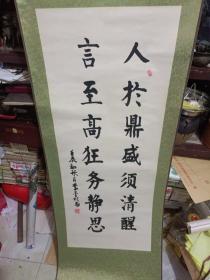 人於鼎盛须清醒
言至高狂务静思